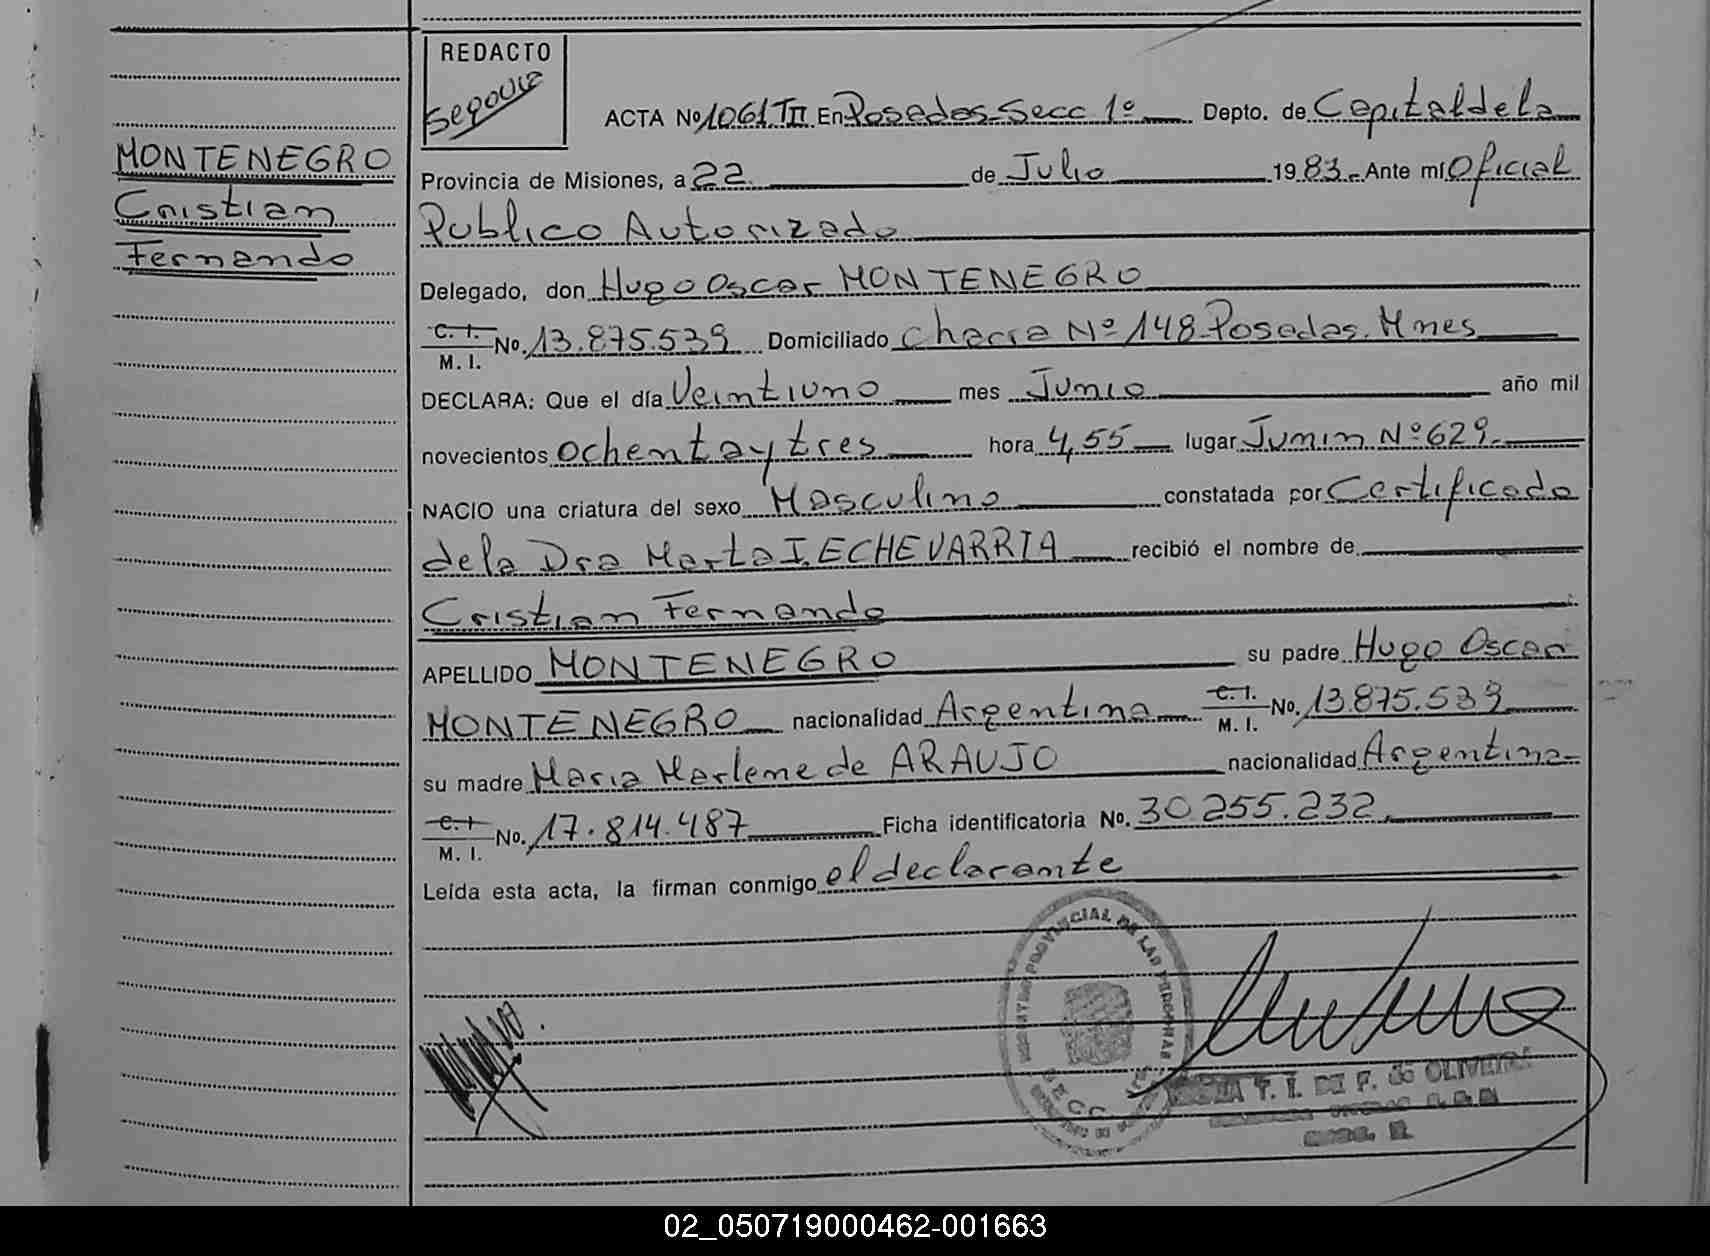 REDACTO
Segovia
ACTA Nº 1061 TII En Posadas-Secc 1º Depto. de Capital de la
MONTENEGRO
Cristian
Fernando
Provincia de Misiones, a 22 de Julio 1983.- Ante mí Oficial
Publico Autorizado
Delegado, don Hugo Oscar MONTENEGRO
C. I.
M. I. No. 13.875.539 Domiciliado Chacra Nº 148-Posadas. Mnes
DECLARA: Que el día Veintiuno mes Junio año mil
novecientos ochenta y tres hora 4,55 lugar Junin Nº 629-
NACIO una criatura del sexo Masculino constatada por Certificado
de la Dra Marta I. ECHEVARRIA recibió el nombre de
Cristian Fernando
APELLIDO MONTENEGRO su padre Hugo Oscar
MONTENEGRO nacionalidad Argentina C. I.
M. I. No. 13.875.539
su madre Maria Marlene de ARAUJO nacionalidad Argentina-
C. I
M. I. No. 17.814.487 Ficha identificatoria No. 30.255.232
Leída esta acta, la firman conmigo el declarante
PROVINCIAL DE LAS PERSONAS
SECC
T. I. DE F. de OLIVEIRA
02_050719000462-001663